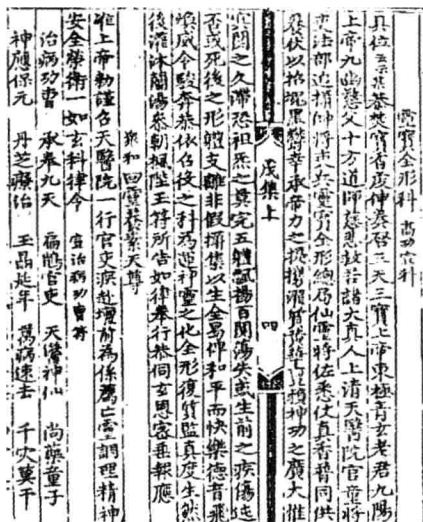 靈寶全形科
具位恭焚寶香虔伸奏启三天三寶上帝東極青玄老君九陽
上帝九幽慈父十方道師慈恩救苦諸大真人上清天醫院官童將
吏法部追攝帥將吏兵靈寶全形局仙靈將佐悉仗真香普同供
養伏以幸承帝力之提攜神功之廣大惟
戊集上
四
冥關之久滯恐祖炁之莫完五體飄揚百関蕩失或生前之疾傷
否或死後之形體支離非假攝集以生全曷得和平而快樂德音飛
煥威令駿奔恭依召役之科為運神靈之化全形復質監真度生然
後灌沐蘭湯恭朝楓陛王符所告如律奉行恭伺玄恩密垂報應
眾和回靈天尊
准上帝勅謹召天醫院一行官吏疾赴壇前為係薦亡靈調理精神
安全榮衛一如玄科律令 宣治病功曹符
治病功曹 承奉九天 扁鵲官吏 天醫神仙 尚藥童子
神應保元 丹芝療治 玉晶延年 萬病速去 千灾莫干